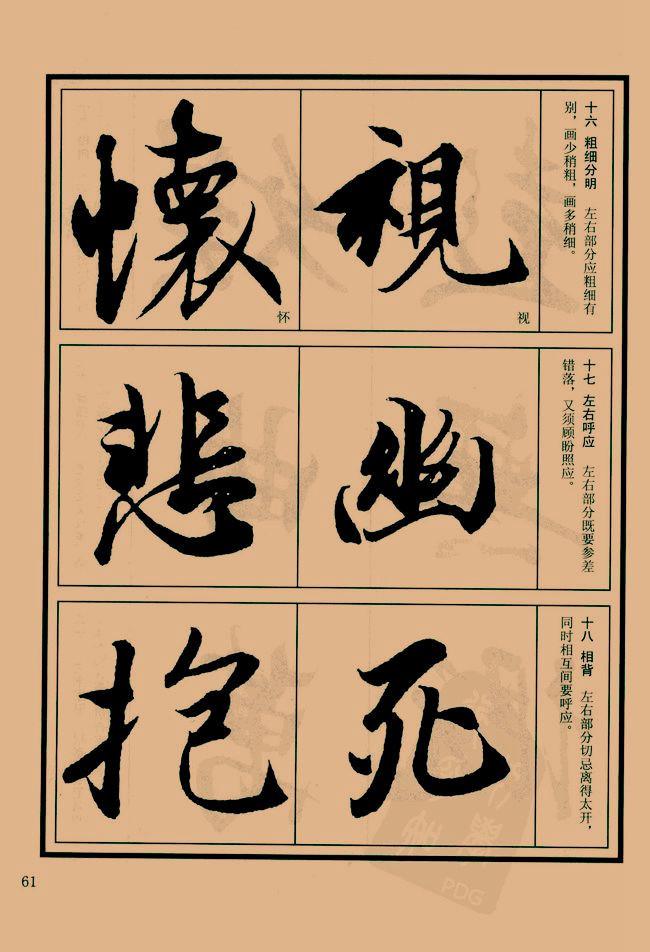 十六 粗细分明 左右部分应粗细有
别，画少稍粗，画多稍细。
視
视
懷
怀
十七 左右呼应 左右部分既要参差
错落，又须顾盼照应。
幽
悲
十八 相背 左右部分切忌离得太开，
同时相互间要呼应。
死
抱
61
PDG